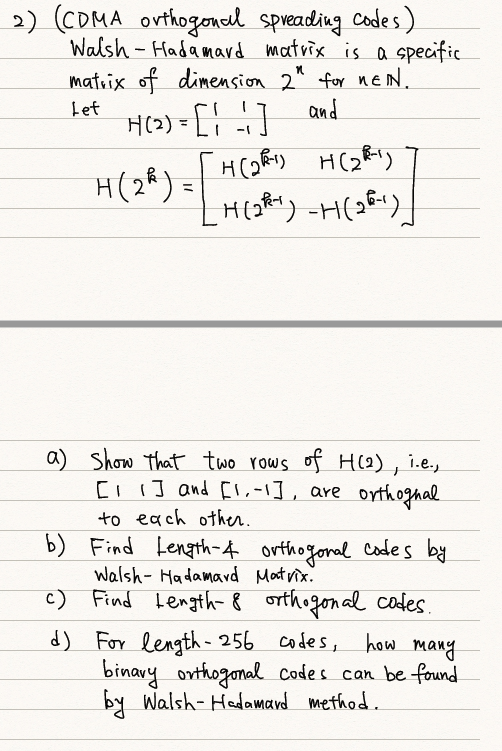 2) (CDMA orthogonal spreading codes)
Walsh-Hadamard matrix is a specific
matrix of dimension 2^n for n∈ℕ.
Let H(2) = [1 1; 1 -1] and
H(2^k) = [H(2^{k-1}) H(2^{k-1}); H(2^{k-1}) -H(2^{k-1})]
a) Show that two rows of H(2), i.e.,
[1 1] and [1,-1], are orthognal
to each other.
b) Find Length-4 orthogonal codes by
Walsh-Hadamard Matrix.
c) Find Length-8 orthogonal codes.
d) For length-256 codes, how many
binary orthogonal codes can be found
by Walsh-Hadamard method.